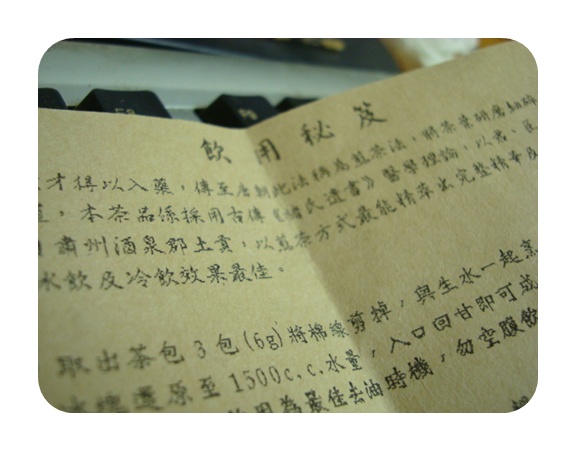 F8
飲用秘笈
才得以入藥，傳至唐朝此法稱為煎茶法，將茶葉研磨細碎
，本茶品係採用古傳《褚氏遺書》醫學理論，以君、臣
肅州酒泉郡土貢，以煎茶方式最能精萃出完整精華及
水飲及冷飲效果最佳。
取出茶包3包(6g)將棉線剪掉，與生水一起烹
還原至1500c.c.水量，入口回甘即可成
用為最佳去油時機，勿空腹飲